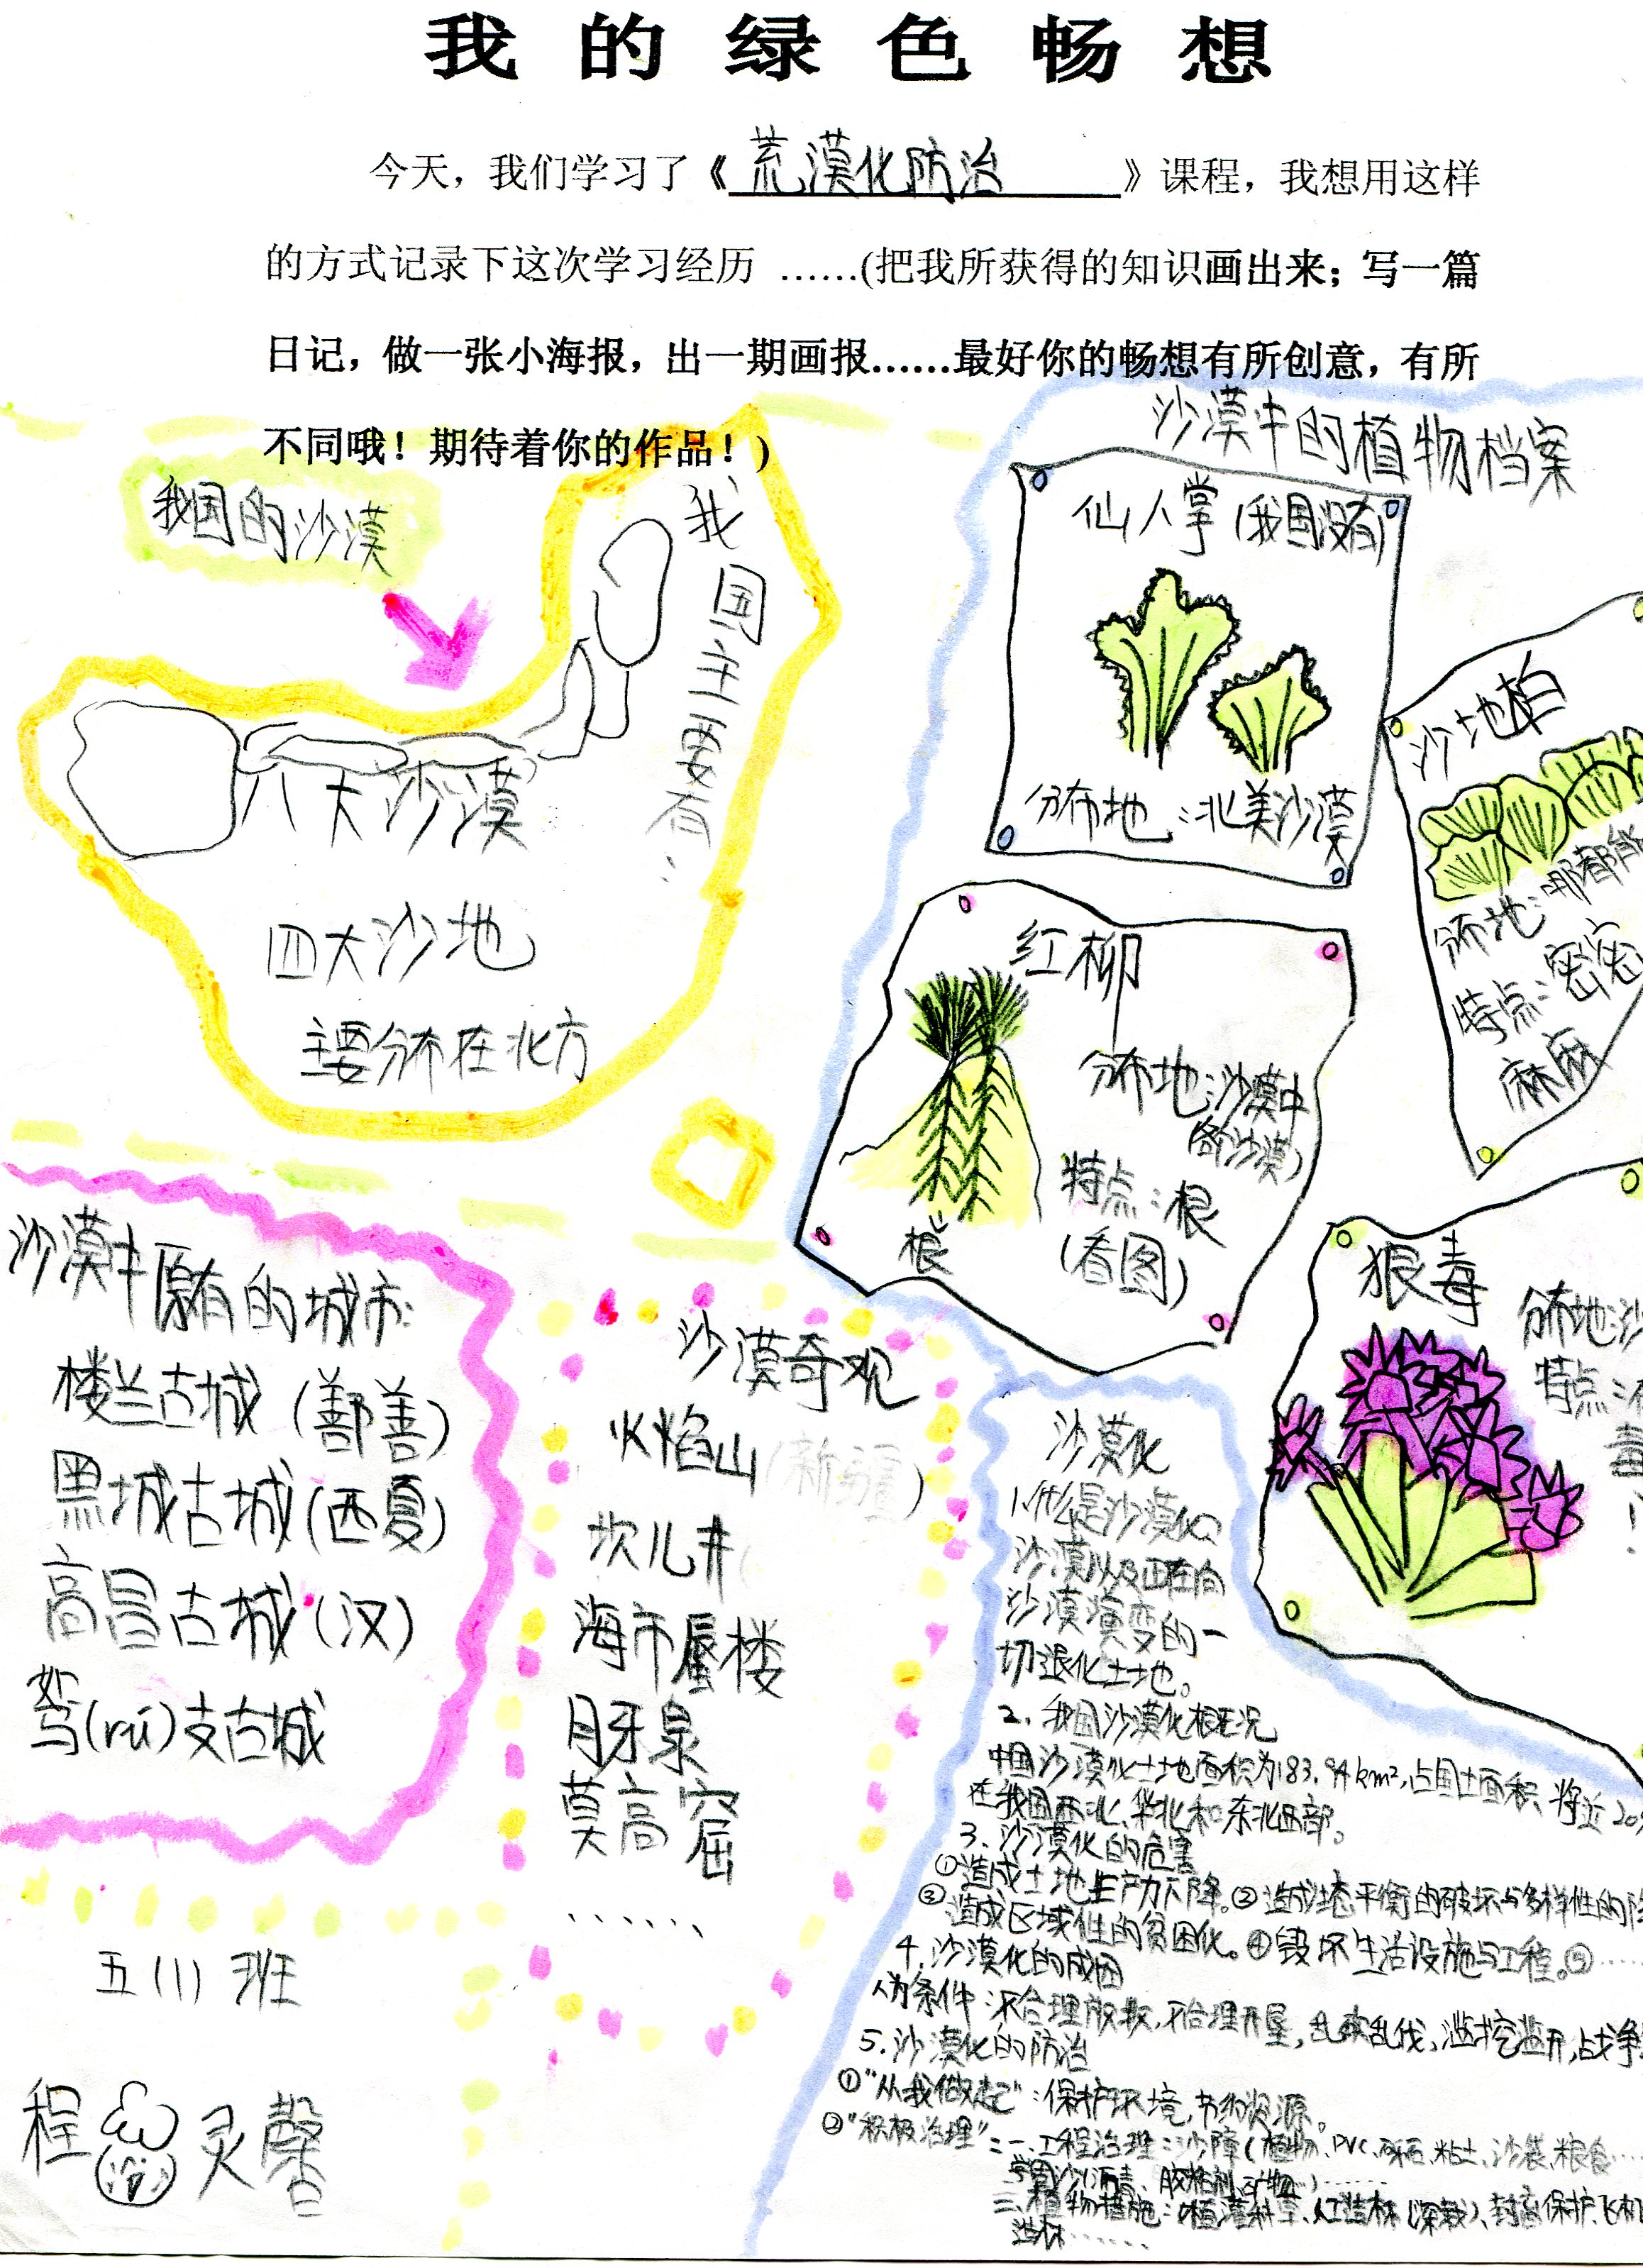 我的绿色畅想
今天，我们学习了《荒漠化防治》课程，我想用这样
的方式记录下这次学习经历 ……(把我所获得的知识画出来；写一篇
日记，做一张小海报，出一期画报……最好你的畅想有所创意，有所
不同哦！期待着你的作品！)
我国的沙漠
我国主要有：
八大沙漠
四大沙地
主要分布在北方
沙漠中的植物档案
仙人掌(我国没有)
分布地：北美沙漠
沙地柏
分布地：哪都
特点：密密
麻麻
红柳
分布地：沙漠中
(各沙漠)
特点：根
(看图)
根
狼毒
分布地：沙
特点：
毒！
沙漠中原有的城市：
楼兰古城(鄯善)
黑城古城(西夏)
高昌古城(汉)
(rú)支古城
沙漠奇观
火焰山(新疆)
坎儿井
海市蜃楼
月牙泉
莫高窟
……
沙漠化
1、什么是沙漠化
沙漠以及正在向
沙漠演变的一
切退化土地。
2、我国沙漠化概况
中国沙漠化土地面积为183.94km²,占国土面积将近20%
在我国西北、华北和东北西部。
3、沙漠化的危害
①造成土地生产力下降。②造成生态平衡的破坏与多样性的
③造成区域性的贫困化。④毁坏生活设施与工程。⑤……
4、沙漠化的成因
人为条件：不合理放牧,不合理开垦,乱砍乱伐,滥挖滥开,战争
5、沙漠化的防治
①"从我做起"：保护环境,节约资源。
②"积极治理"：一、工程治理：沙障(植物、PVC、砾石、粘土、沙袋、粮食……
学固沙(沥青、胶粘剂、)……
三、植物措施：植灌种草、人工造林(深栽)、封育保护、飞机
造林……
五(1)班
程灵馨